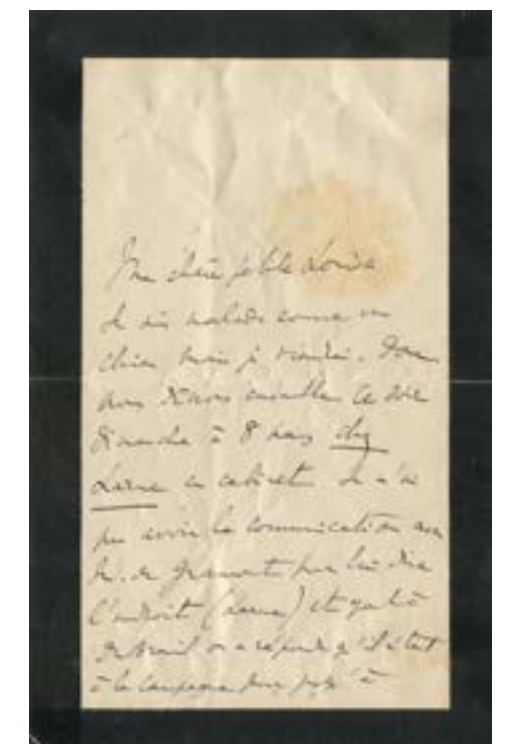 Ma chère petite Louisa
Je suis malade comme un
chien, mais je viendrai. Nous
avons dînons ensemble ce soir
dimanche à 8 heures chez
Larue en cabinet. Je n'ai
pu avoir la communication avec
M. de Gramont pour lui dire
l'endroit (Larue) et
on a répondu qu'il était
à la campagne pour jusqu'à